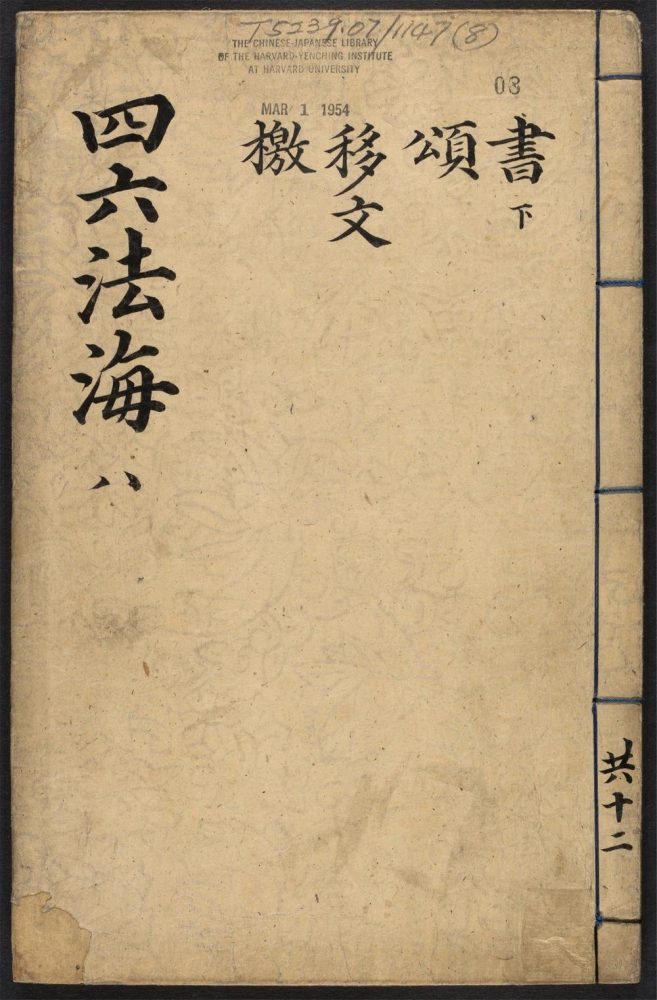 T5239.07/1147(8)
THE CHINESE-JAPANESE LIBRARY
OF THE HARVARD-YENCHING INSTITUTE
AT HARVARD UNIVERSITY
MAR 1 1954
08
書下
頌
移文
檄
四六法海 八
共十二